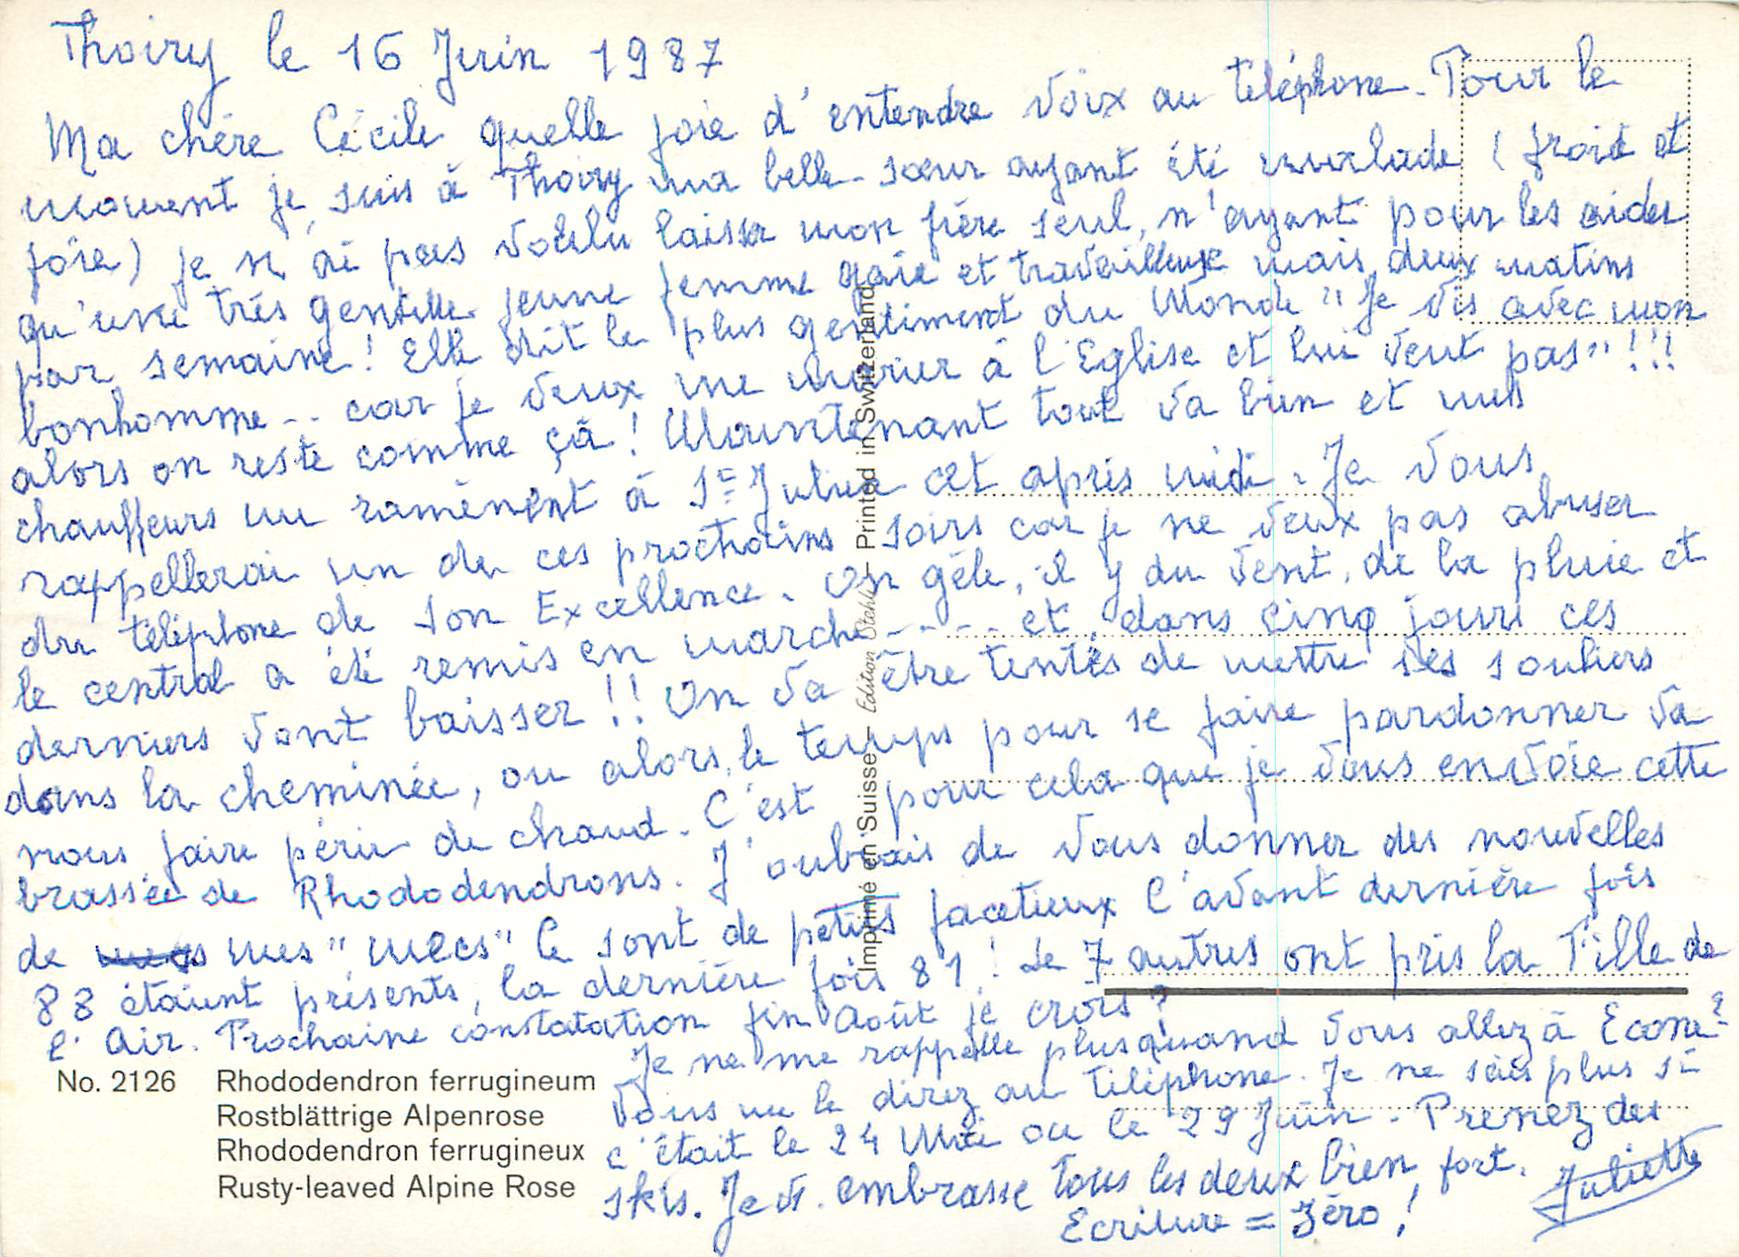 Thoiry le 16 Juin 1987
Ma chère Cécile quelle joie d'entendre voix au téléphone. Pour le
moment je suis à Thoiry ma belle-sœur ayant été malade (froid et
foie) je n'ai pas voulu laisser mon frère seul, n'ayant pour les aider
qu'une très gentille jeune femme gaie et travailleuse mais deux matins
par semaine! Elle dit le plus gentiment du Monde "Je vis avec mon
bonhomme.. car je veux me marier à l'Eglise et lui veut pas"!!!
alors on reste comme ça! Maintenant tout va bien et mes
chauffeurs me ramènent à St Julien cet après midi. Je vous
rappellerai un de ces prochains soirs car je ne veux pas abuser
du téléphone de Son Excellence. On gèle, il y du vent, de la pluie et
le central a été remis en marche.... et, dans cinq jours ces
derniers vont baisser!! On va être tentés de mettre ses souliers
dans la cheminée, ou alors, le temps pour se faire pardonner va
nous faire périr de chaud. C'est pour cela que je vous envoie cette
brassée de Rhododendrons. J'oubliais de vous donner des nouvelles
de mes "mecs" Ce sont de petits facetieux l'avant dernière fois
88 étaient présents, la dernière fois 81! Le 7 autres ont pris la Fille de
l'Air. Prochaine constatation fin Août je crois?
Je ne me rappelle plus quand vous allez à Econe?
Vous me le direz au téléphone. Je ne sais plus si
c'était le 24 Mai ou le 29 Juin. Prenez des
skis. Je v. embrasse tous les deux bien fort. Juliette
Ecriture = Zéro!
No. 2126 Rhododendron ferrugineum
Rostblättrige Alpenrose
Rhododendron ferrugineux
Rusty-leaved Alpine Rose
Imprimé en Suisse – Edition Stehli – Printed in Switzerland